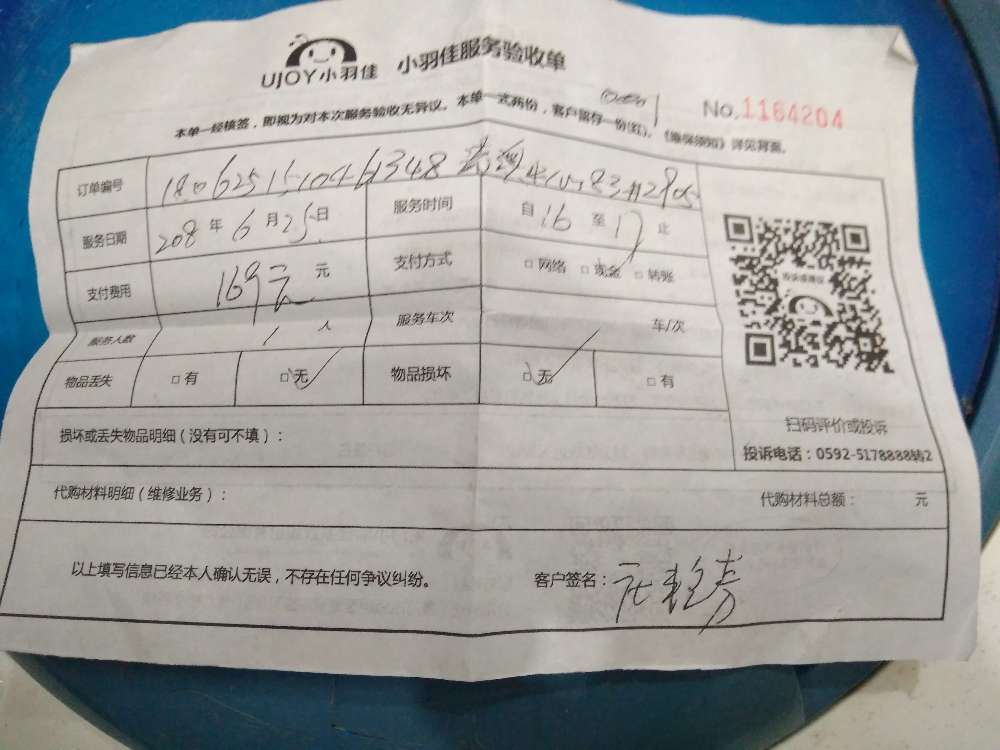 UJOY小羽佳 小羽佳服务验收单
No.1164204
本单一经核签,即视为对本次服务验收无异议。本单一式两份,客户留存一份(红)。《维保须知》详见背面。
订单编号 180625151046348
服务日期 208年6月25日 服务时间 自16至17止
支付费用 169元 元 支付方式 □网络 □现金 □转账
服务人数 1人 服务车次 车/次
物品丢失 □有 □无 物品损坏 □无 □有
损坏或丢失物品明细(没有可不填):
扫码评价或投诉
投诉电话:0592-5178888转2
代购材料明细(维修业务): 代购材料总额: 元
以上填写信息已经本人确认无误,不存在任何争议纠纷。 客户签名: